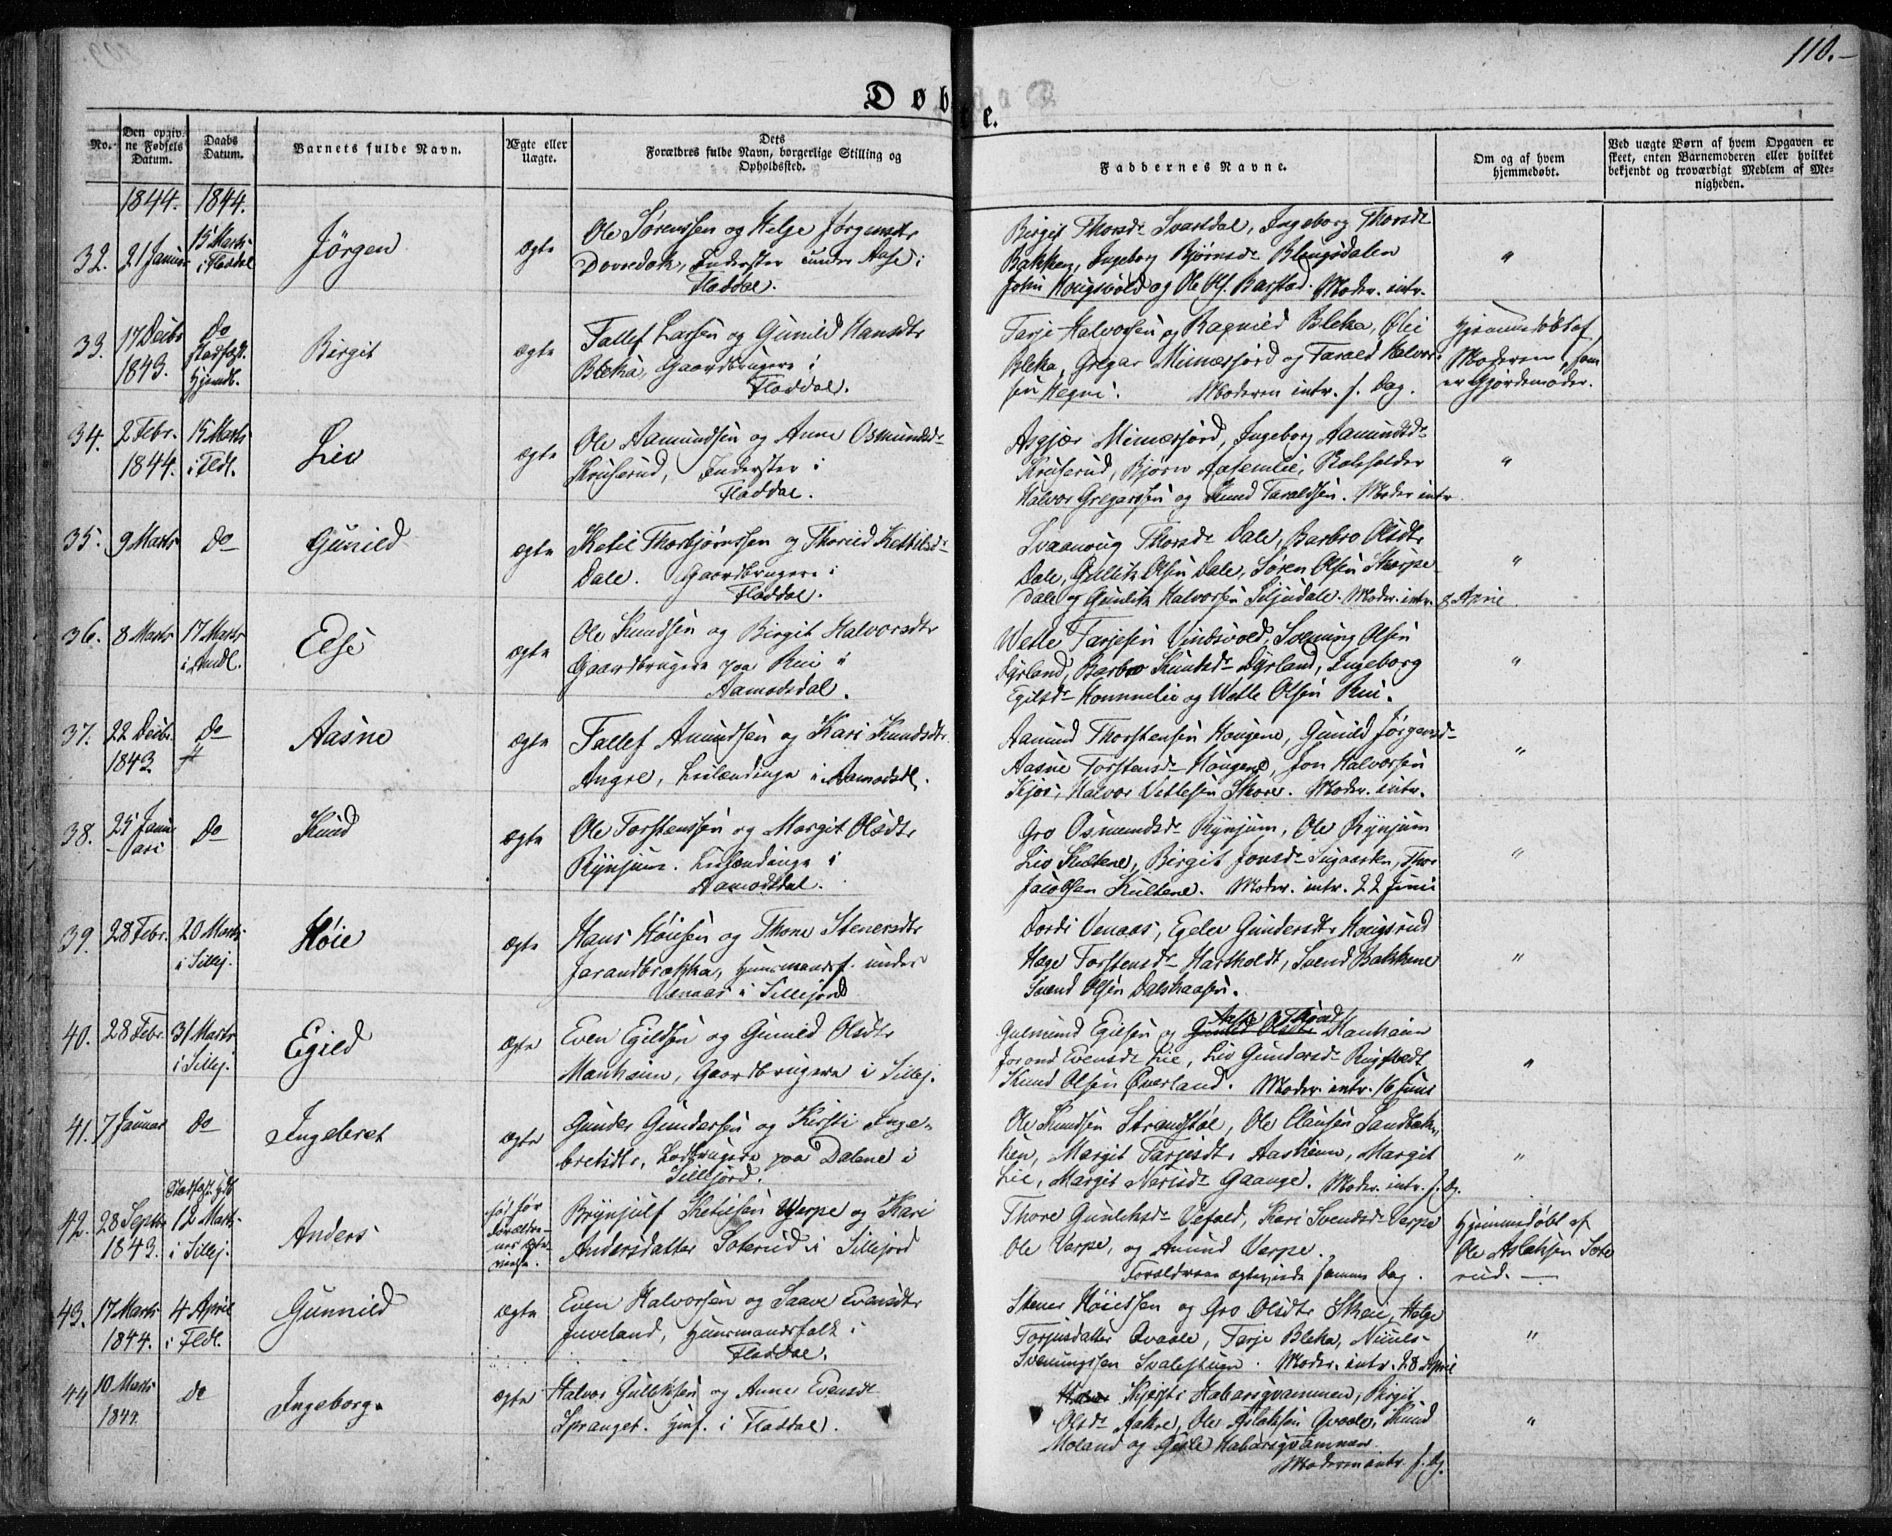 110.-
Døbte.
No.
Den opgivne Fødsels Datum.
Daabs Datum.
Barnets fulde Navn.
Ægte eller Uægte.
Dets Forældres fulde Navn, borgerlige Stilling og Opholdssted.
Faddernes Navne.
Om og af hvem hjemmedøbt.
Ved uægte Børn af hvem Opgaven er skeet, enten Barnemoderen eller hvilket bekjendt og troværdigt Medlem af Menigheden.
1844. 1844.
32. 21 Januar 15 Marts i Fladdal Jörgen ægte
Ole Sørenssen og Helje Jørgensdtr
Dovredok, Inderster under Aase i
Fladdal.
Birgit Thorsdr Svartdal, Ingeborg Thorsdr
Bakken, Ingeborg Bjørnsdr
John Hougsvold og Ole Barstad. Moder. intr.
33. 17 Decbr 1843. Do stadfæst. Hjemdb. Birgit ægte
Tallef Larsen og Gunild Hansdtr
Bleka, Gaardbrugere i
Fladdal.
Tarje Halvorsen og Ragnild Bleka, Olei
Bleka, Gregar Mimæsfjord og Tarald Halvor-
sen Hegni. Moderen intr. s. Dag.
Hjemmedøbt af
Moderen, som
er Gjordemoder.
34. 2 Febr. 1844. 15 Marts i Fldl. Liv ægte
Ole Aamundsen og Anne Osmundsdr
Kruserud, Inderster i
Fladdal.
Asgjær Mimæsfjord, Ingeborg Aamundsdr
Kruserud, Bjørn Aasemlie,
Halvor Gregarssen og Knud Taraldsen. Moder intr
35. 9 Marts Do Gunild ægte
Ketil Thorbjørnssen og Thorild Kettilsdr
Dale. Gaardbrugere i
Fladdal.
Svaanoug Thorsdr Dale, Barbro Olsdtr
Dale, Gullik Olsen Dale, Søren Olsen Skorpe
Dale og Gunlik Halvorsen Siljudale. Moder. intr. 8 April
36. 8 Marts 17 Marts i Amdl. Else ægte
Ole Knudsen og Birgit Halvorsdtr
Gaardbrugere paa Rui i
Aamodsdal.
Wetle Tarjesen Vindsvold, Solmung Olsen
Dyrland, Barbro Knutsdr Dyrland, Ingeborg
Egilsdr Hommelie og Wetle Olsen Rui.
37. 22 Decbr. 1843. Do Aasne ægte
Tallef Amundsen og Kari Knudsdtr
Angre, Leilændinge i Aamodsdl.
Aamund Thorstensen Hougene, Gunild Jørgensdr
Aasne Torstensdr Hougene, Jon Halvorsen
Kjos, Halvor Vetlesen Skore. Moder. intr.
38. 25 Januari Do Knud ægte
Ole Torstenssen og Margit Olsdtr
Rynjum. Leilændinge i
Aamodsdal.
Gro Osmundsdr Rynjum, Ole Rynjum
Liv Kultene, Birgit Jonsdr Sugaarden, Thor
Jacobsen Kultene. Moder. intr. 22 Juni
39. 28 Febr. 20 Marts i Sillej. Høie ægte
Hans Høiesen og Thone Stenersdtr
Jarandbrækka, Huusmandsf. under
Venaas i Sillejord
Dordi Venaas, Egeler Gundersdtr Hougsrud
Hæge Torstensdr Hartholdt, Svend Bakkene
Svend Olsen Dalskaasen.
40. 28 Febr. 31 Marts i Sillej. Egild ægte
Even Egildsen og Gunild Olsdtr
Manheim, Gaardbrugere i Sillej.
Gulmund Egilsen og Manheim
Jorond Evensdr Lie, Liv Gundersdr
Knud Olsen Øverland. Moder. intr. 16 Juni
41. 7 Januar Do Ingebret ægte
Gunder Gundersen og Kirsti Inge-
bretsdtr, Ledbrugere paa Dalene i
Sillejord.
Ole Knudsen Strandstøl, Ole Clausen Sandbæk-
ken, Margit Tarjesdtr Aasheim, Margit
Lie, Margit Nerisdr Gaange. Moder intr. s. Dg.
42. 28 Septbr 1843. Stadfæst. Hjdb 12 Marts i Sillej. Anders
fød før Forældrenes Ægtevielse.
Brynjulf Ketilsen Verpe og Kari
Andersdatter Soterud i Sillejord
Thore Gunleksdr Vefald, Kari Svendsdr Verpe
Ole Verpe, og Amund Verpe.
Forældrene ægteviede samme Dag.
Hjemmedøbt af
Ole Aslaksen Sote
rud.
43. 17 Marts 1844. 4 April i Fldl. Gunnild ægte
Even Halvorsen og Saave Evensdtr
Juveland, Huusmandsfolk i
Fladdal.
Stener Høiessen og Gro Olsdtr Skei, Helge
Torjusdatter Qvaale, Tarje Bleka, Niuls
Svenungssen Svalestugn. Moder. intr. 28 April
44 10 Marts 1844. Do Ingeborg. ægte
Halvor Gulleksen og Anne Evensdr
Spranget. Hmf. i Fladdal.
Kjersti Haborsqvammen, Birgit
Olsdr Aakre, Ole Aslaksen Qvaale, Knud
Moland og Gisle Haborsqvammen.
Moderen intr. s. Dg.